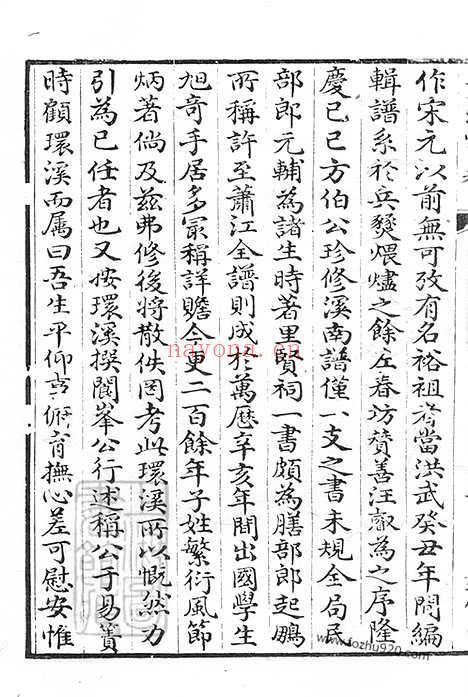 作宋元以前無可攷有名裕祖者當洪武癸丑年間編
輯譜系於兵燹煨燼之餘左春坊贊善汪叡為之序隆
慶己巳方伯公珍修溪南譜僅一支之書未規全局民
部郎元輔為諸生時著里賢祠一書頗為膳部郎起鵬
所稱許至蕭江全譜則成於萬曆辛亥年間出國學生
旭奇手居多冣稱詳贍今更二百餘年子姓繁衍風節
炳著倘及兹弗修後將散佚罔考此環溪所以慨然力
引為己任者也又按環溪撰閬峯公行述稱公于易簀
時顧環溪而属曰吾生平仰事俯育撫心差可慰安惟
nayona.cn
www.fozhu920.com